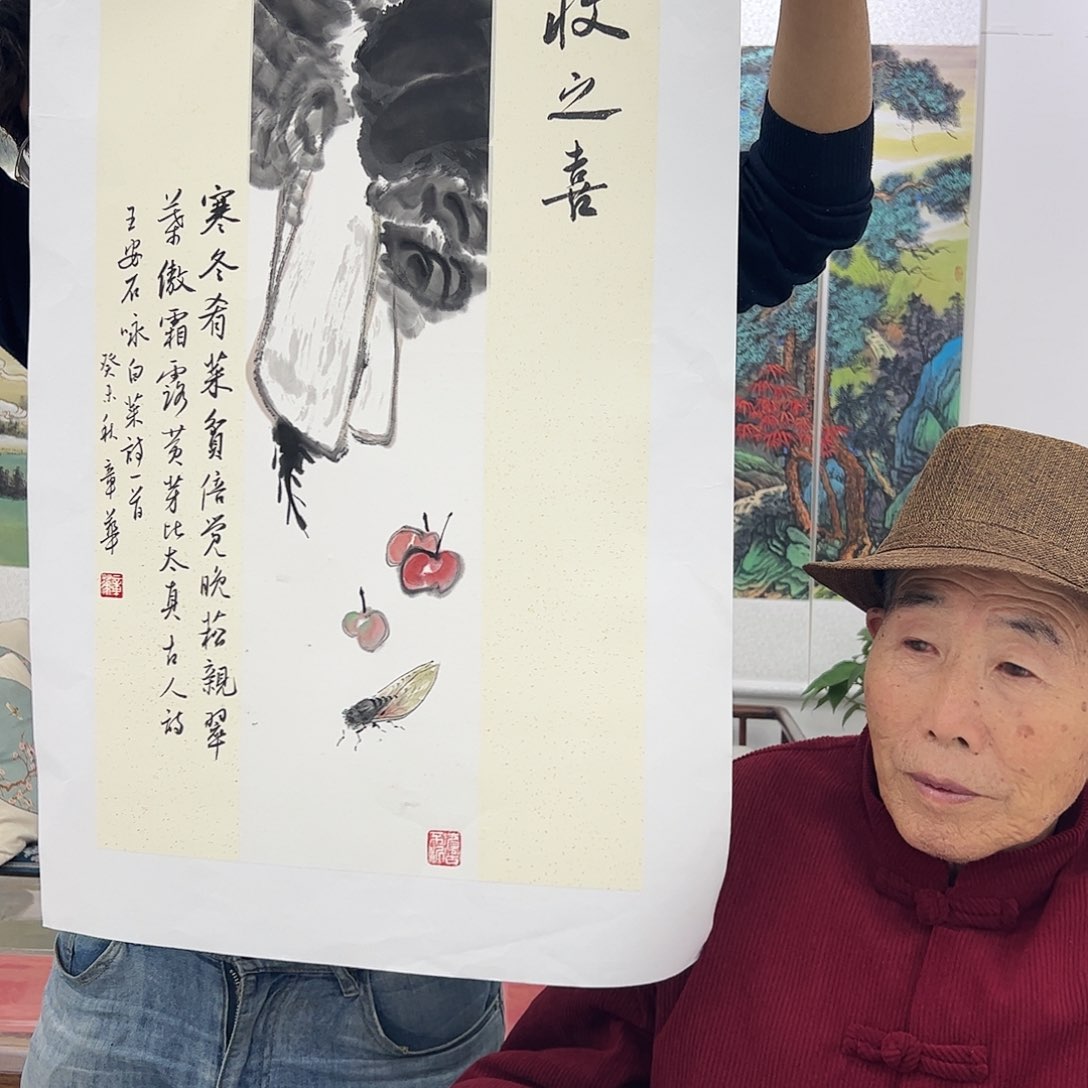 收之喜
寒冬肴菜貧倍觉晚菘親翠
葉傲霜露黄芽比太真古人詩
王安石咏白菜詩一首
癸未秋章華